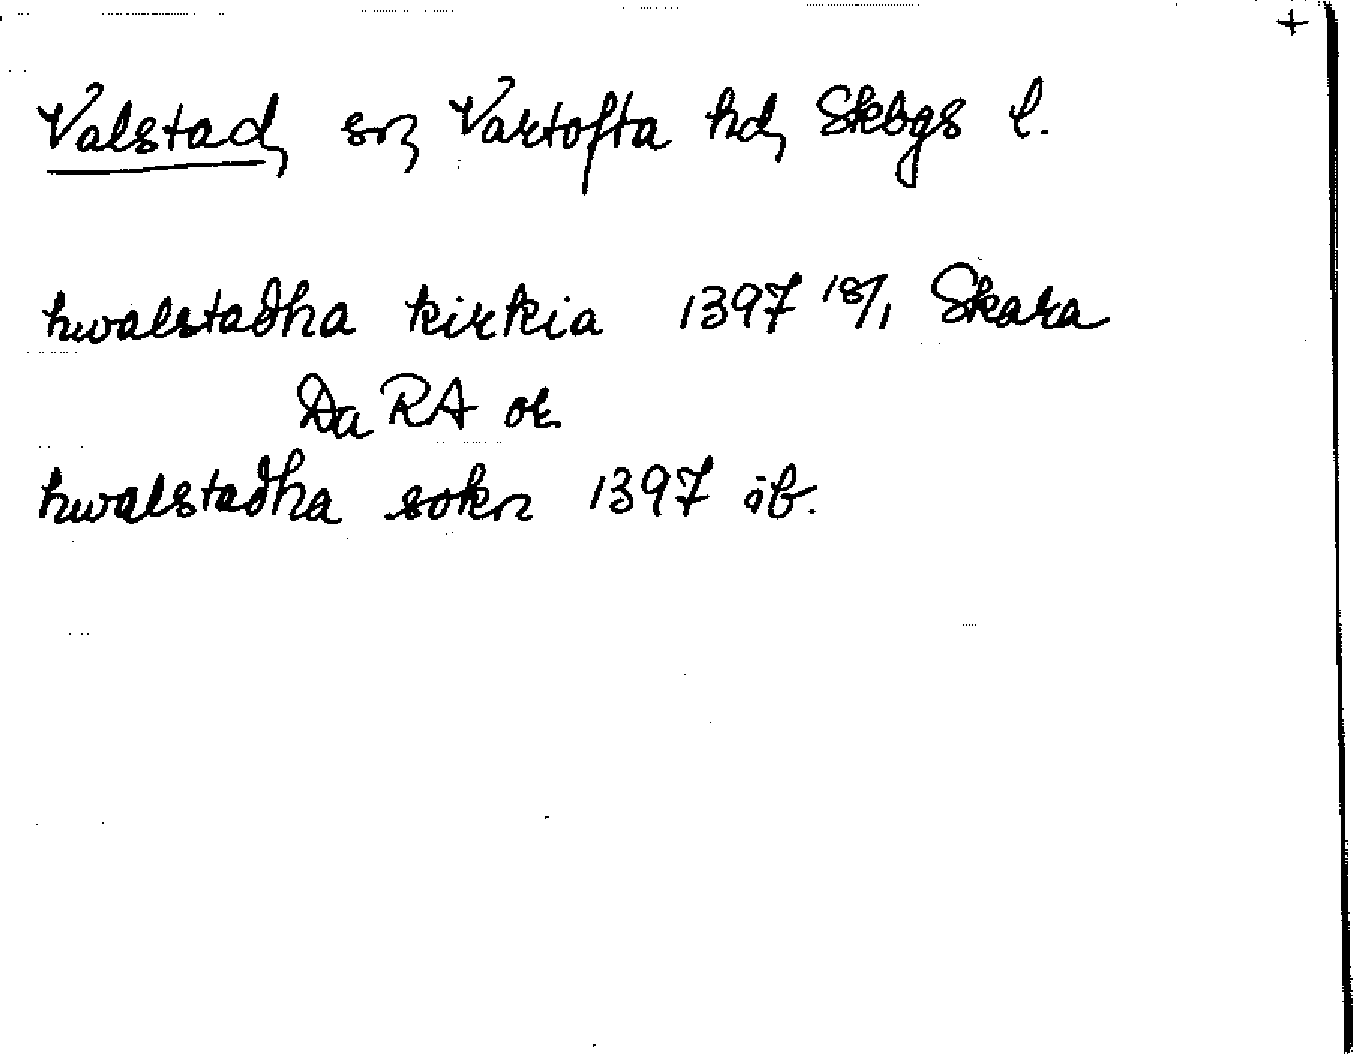 +
Valstad, sn, Vartofta hd, Skbgs l.
hwalstadha kirkia 1397 18/1 Skara
Da RA or.
hwalstadha sokn 1397 ib.